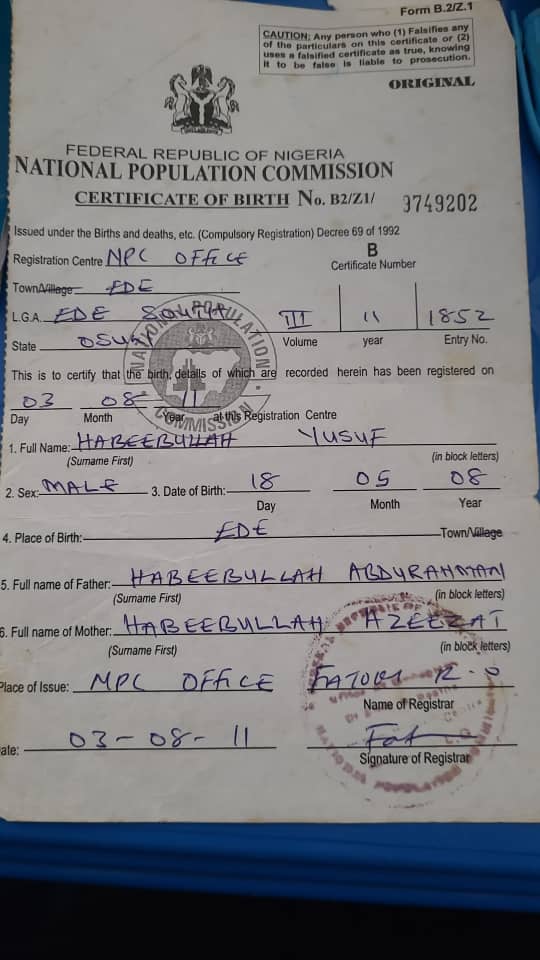 Form B.2/Z.1
CAUTION; Any person who (1) Falsifies any
of the particulars on this certificate or (2)
uses a falsified certificate as true, knowing
it to be false is liable to prosecution.
ORIGINAL
FEDERAL REPUBLIC OF NIGERIA
NATIONAL POPULATION COMMISSION
CERTIFICATE OF BIRTH No. B2/Z1/ 3749202
Issued under the Births and deaths, etc. (Compulsory Registration) Decree 69 of 1992
Registration Centre NPC OFFICE
B
Certificate Number
Town/Village EDE
L.G.A. EDE SOUTH III 11 1852
State OSUN Volume year Entry No.
NATIONAL POPULATION COMMISSION
This is to certify that the birth, details of which are recorded herein has been registered on
03 08 11
Day Month Year at this Registration Centre
1. Full Name: HABEEBULLAH YUSUF
(Surname First) (in block letters)
2. Sex: MALE 3. Date of Birth: 18 05 08
Day Month Year
4. Place of Birth: EDE Town/Village
5. Full name of Father: HABEEBULLAH ABDURAHMAN
(Surname First) (in block letters)
6. Full name of Mother: HABEEBULLAH AZEEZAT
(Surname First) (in block letters)
Place of Issue: NPC OFFICE R.O
Name of Registrar
ate: 03-08-11
Signature of Registrar